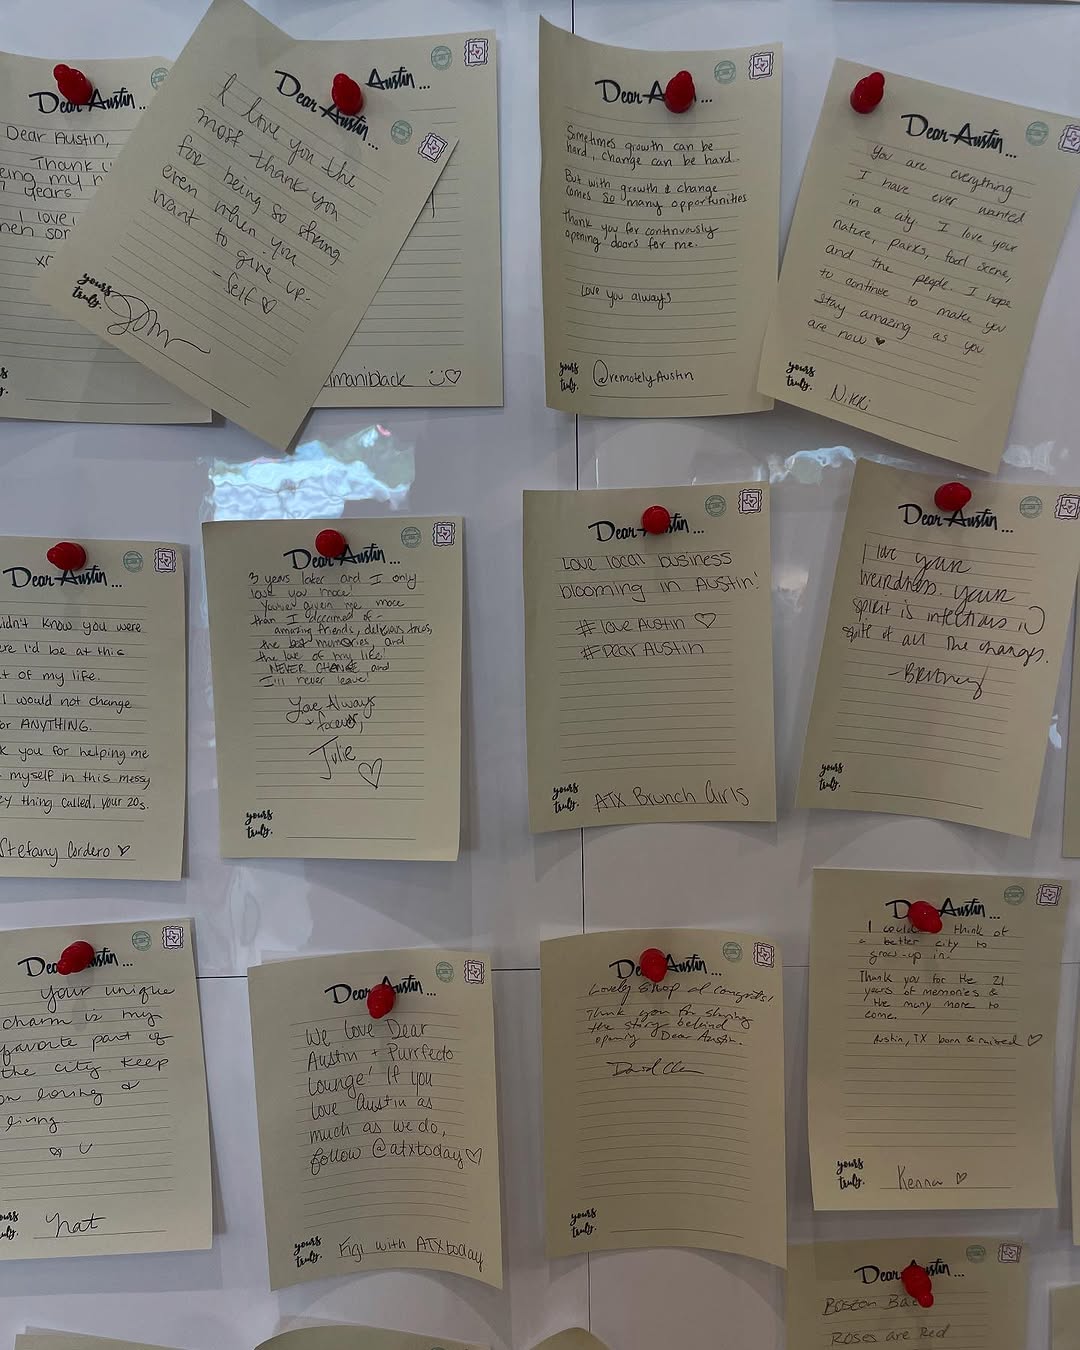 Dear Austin...
Dear Austin,
Thank
being my
7 years
I love
xo
Dear Austin...
I love you the
most thank you
for being so strong
even when you
want to give up.
- Self ♡
yours
truly.
Austin...
imaniblack
Dear A...
Sometimes growth can be
hard, change can be hard.
But with growth & change
comes so many opportunities
Thank you for continuously
opening doors for me.
Love you always
yours
truly.
@remotelyAustin
Dear Austin...
You are everything
I have ever wanted
in a city. I love your
nature, parks, food scene,
and the people. I hope
to continue to make you
stay amazing as you
are now ♥
yours
truly.
Nikki
Dear Austin...
didn't know you were
I'd be at this
of my life.
I would not change
for ANYTHING.
you for helping me
myself in this messy
thing called, your 20s.
Stefany Cordero ♡
Dear Austin...
3 years later and I only
love you more!
You've given me more
than I dreamed of -
amazing friends, delicious tacos,
the best memories, and
the love of my life!
NEVER CHANGE and
I'll never leave!
Love Always
+ forever,
Julie
♡
yours
truly.
Dear Austin...
Love local business
blooming in Austin!
#loveAustin ♡
#DearAustin
yours
truly.
ATX Brunch Girls
Dear Austin...
I love your
weirdness. your
spirit is infectious in
spite of all the changes.
- Britney
yours
truly.
Dear Austin...
Your unique
charm is my
favorite part of
the city. Keep
on loving &
living
yours
truly.
Nat
Dear Austin...
We love Dear
Austin + Purrfecto
Lounge! If you
love Austin as
much as we do,
follow @atxtoday ♡
yours
truly.
Figi with ATXtoday
Dear Austin...
Lovely shop and congrats!
Thank you for sharing
the story behind
opening Dear Austin.
David
yours
truly.
Dear Austin...
I think of
a better city to
grow-up in.
Thank you for the 21
years of memories &
the many more to
come.
Austin, TX born & raised ♡
yours
truly.
Kenna ♡
Dear Austin...
Boston
Roses are Red